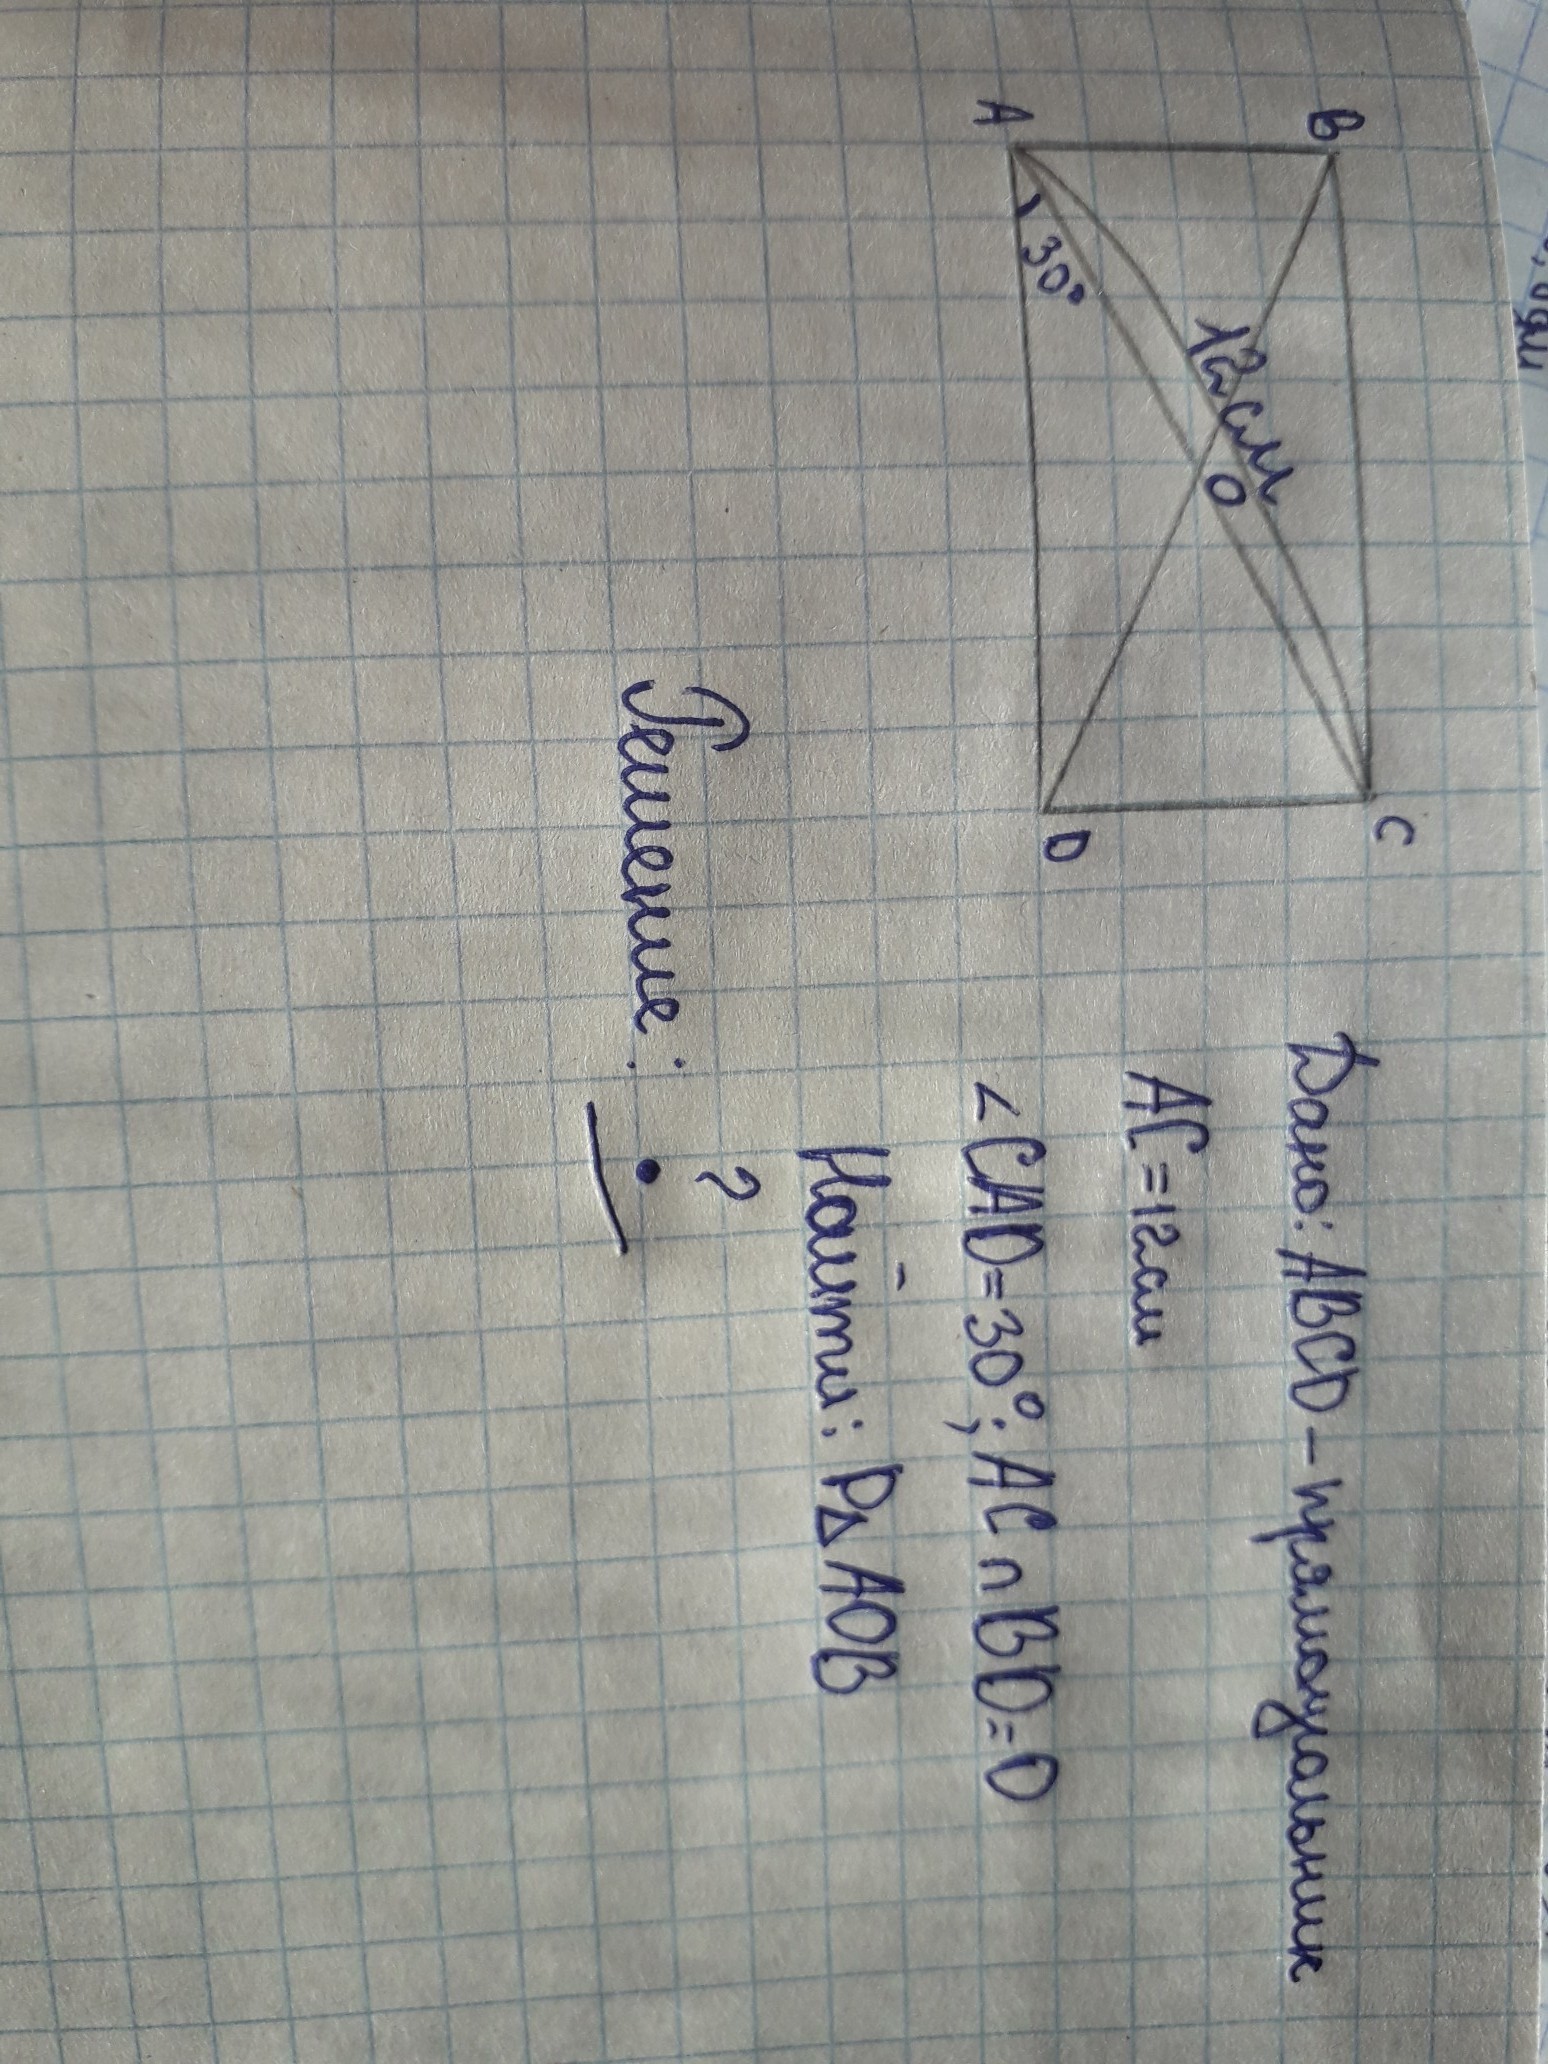 B
C
12 см
O
30°
A
D
Дано: ABCD - прямоугольник
AC = 12см
< CAD = 30°; AC ∩ BD = O
Найти: P∆ AOB
?
Решение: